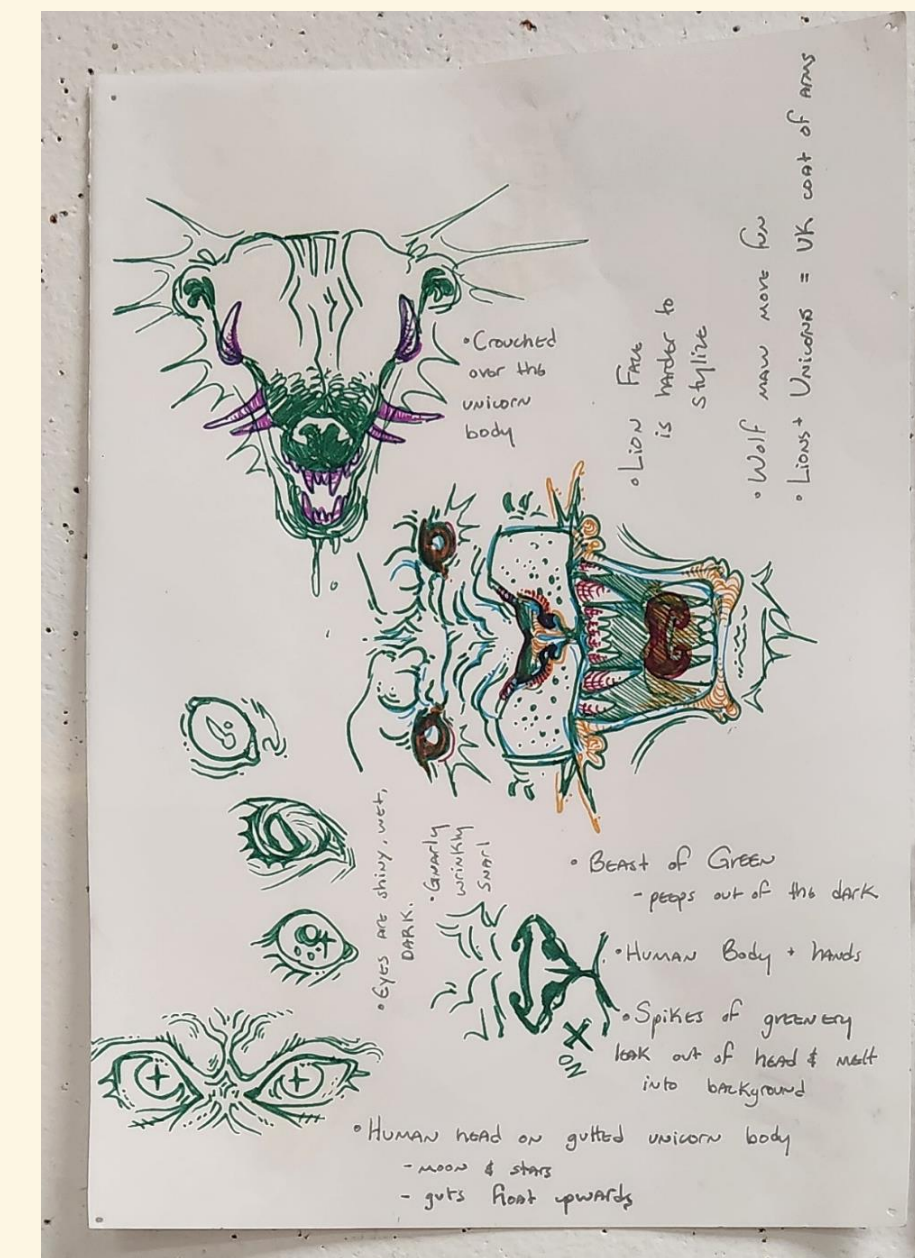 • Crouched
over the
unicorn
body
• Lion Face
is harder to
stylize
• Wolf maw more fun
• Lions + Unicorns = UK coat of arms
• Eyes are shiny, wet,
DARK.
• Gnarly
wrinkly
snarl
• Beast of Green
- peeps out of the dark
• Human Body + hands
• Spikes of greenery
leak out of head & melt
into background
X
NO
• Human head on gutted unicorn body
- moon & stars
- guts float upwards